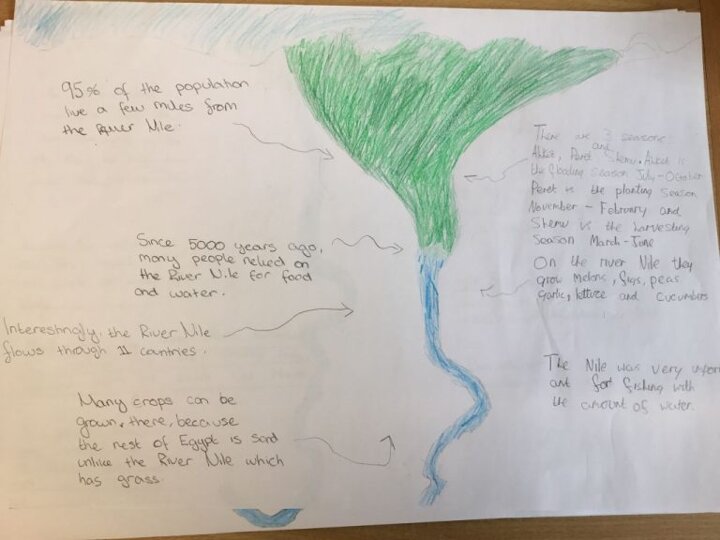 95% of the population
live a few miles from
the River Nile.
Since 5000 years ago,
many people relied on
the River Nile for food
and water.
Interestingly, the River Nile
flows through 11 countries.
Many crops can be
grown, there, because
the rest of Egypt is sand
unlike the River Nile which
has grass.
There are 3 seasons
and
Ahket, Peret Shemu. Ahket is
the flooding season July-October
Peret is the planting season
November - February and
Shemu is the harvesting
Season March-June
On the river Nile they
grow melons, figs, peas
garlic, lettuce and cucumbers
The Nile was very import
ant for fishing with
the amount of water.